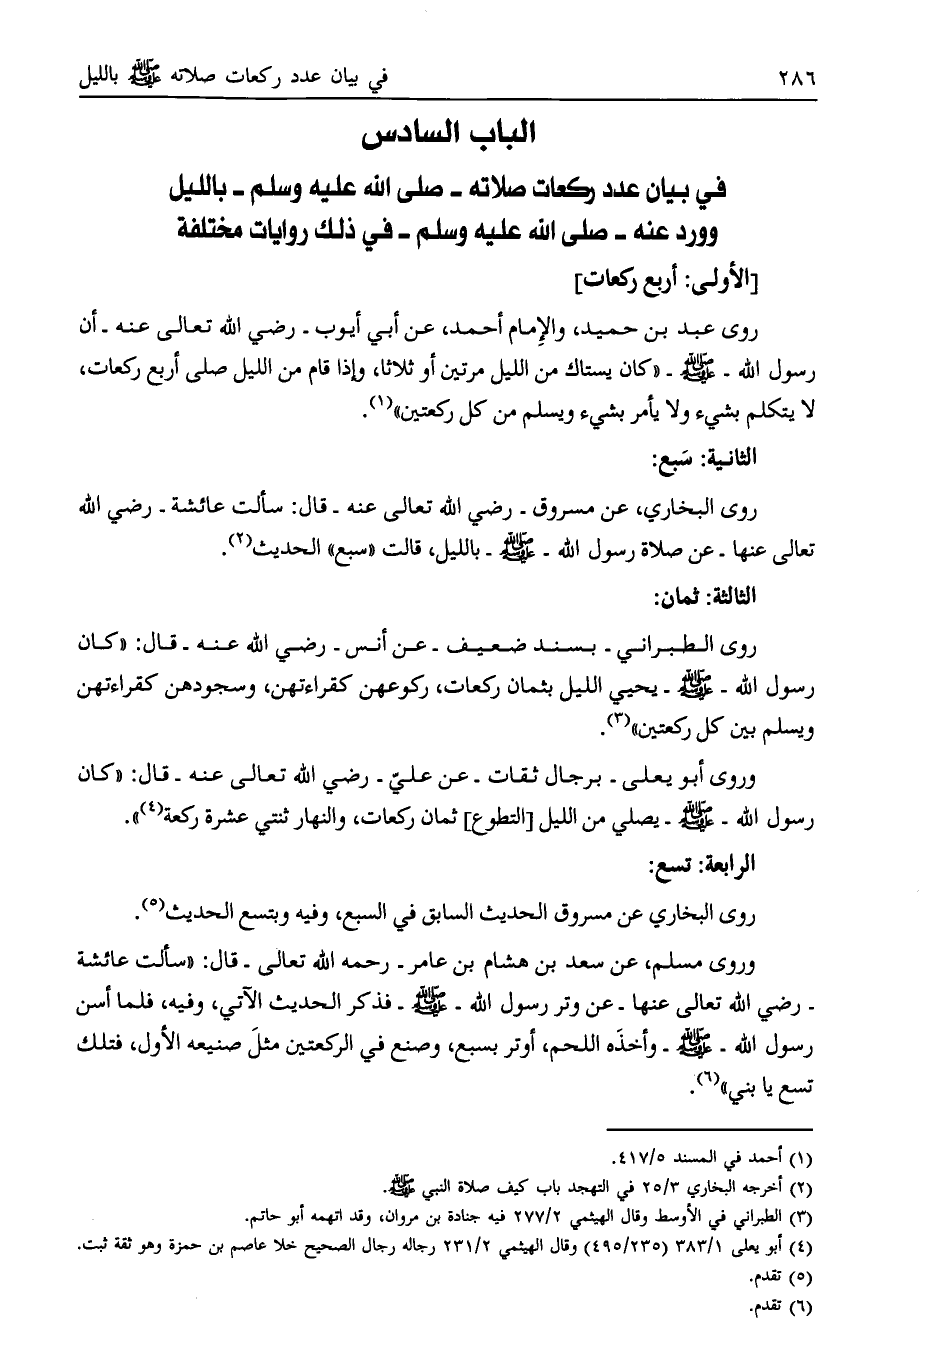 ٢٨٦ في بيان عدد ركعات صلاته ﷺ بالليل
الباب السادس
في بيان عدد ركعات صلاته ـ صلى الله عليه وسلم ـ بالليل
وورد عنه ـ صلى الله عليه وسلم ـ في ذلك روايات مختلفة
[الأولى: أربع ركعات]
روى عبد بن حميد، والإمام أحمد، عن أبي أيوب ـ رضي الله تعالى عنه ـ أن
رسول الله ـ ﷺ ـ «كان يستاك من الليل مرتين أو ثلاثا، وإذا قام من الليل صلى أربع ركعات،
لا يتكلم بشيء ولا يأمر بشيء ويسلم من كل ركعتين»(١).
الثانية: سَبع:
روى البخاري، عن مسروق ـ رضي الله تعالى عنه ـ قال: سألت عائشة ـ رضي الله
تعالى عنها ـ عن صلاة رسول الله ـ ﷺ ـ بالليل، قالت «سبع» الحديث(٢).
الثالثة: ثمان:
روى الطبراني ـ بسند ضعيف ـ عن أنس ـ رضي الله عنه ـ قال: «كان
رسول الله ـ ﷺ ـ يحيي الليل بثمان ركعات، ركوعهن كقراءتهن، وسجودهن كقراءتهن
ويسلم بين كل ركعتين»(٣).
وروى أبو يعلى ـ برجال ثقات ـ عن عليّ ـ رضي الله تعالى عنه ـ قال: «كان
رسول الله ـ ﷺ ـ يصلي من الليل [التطوع] ثمان ركعات، والنهار ثنتي عشرة ركعة(٤)».
الرابعة: تسع:
روى البخاري عن مسروق الحديث السابق في السبع، وفيه وبتسع الحديث(٥).
وروى مسلم، عن سعد بن هشام بن عامر ـ رحمه الله تعالى ـ قال: «سألت عائشة
ـ رضي الله تعالى عنها ـ عن وتر رسول الله ـ ﷺ ـ فذكر الحديث الآتي، وفيه، فلما أسن
رسول الله ـ ﷺ ـ وأخذَه اللحم، أوتر بسبع، وصنع في الركعتين مثلَ صنيعه الأول، فتلك
تسع يا بني»(٦).
(١) أحمد في المسند ٤١٧/٥.
(٢) أخرجه البخاري ٢٥/٣ في التهجد باب كيف صلاة النبي ﷺ.
(٣) الطبراني في الأوسط وقال الهيثمي ٢٧٧/٢ فيه جنادة بن مروان، وقد اتهمه أبو حاتم.
(٤) أبو يعلى ٣٨٣/١ (٤٩٥/٢٣٥) وقال الهيثمي ٢٣١/٢ رجاله رجال الصحيح خلا عاصم بن حمزة وهو ثقة ثبت.
(٥) تقدم.
(٦) تقدم.